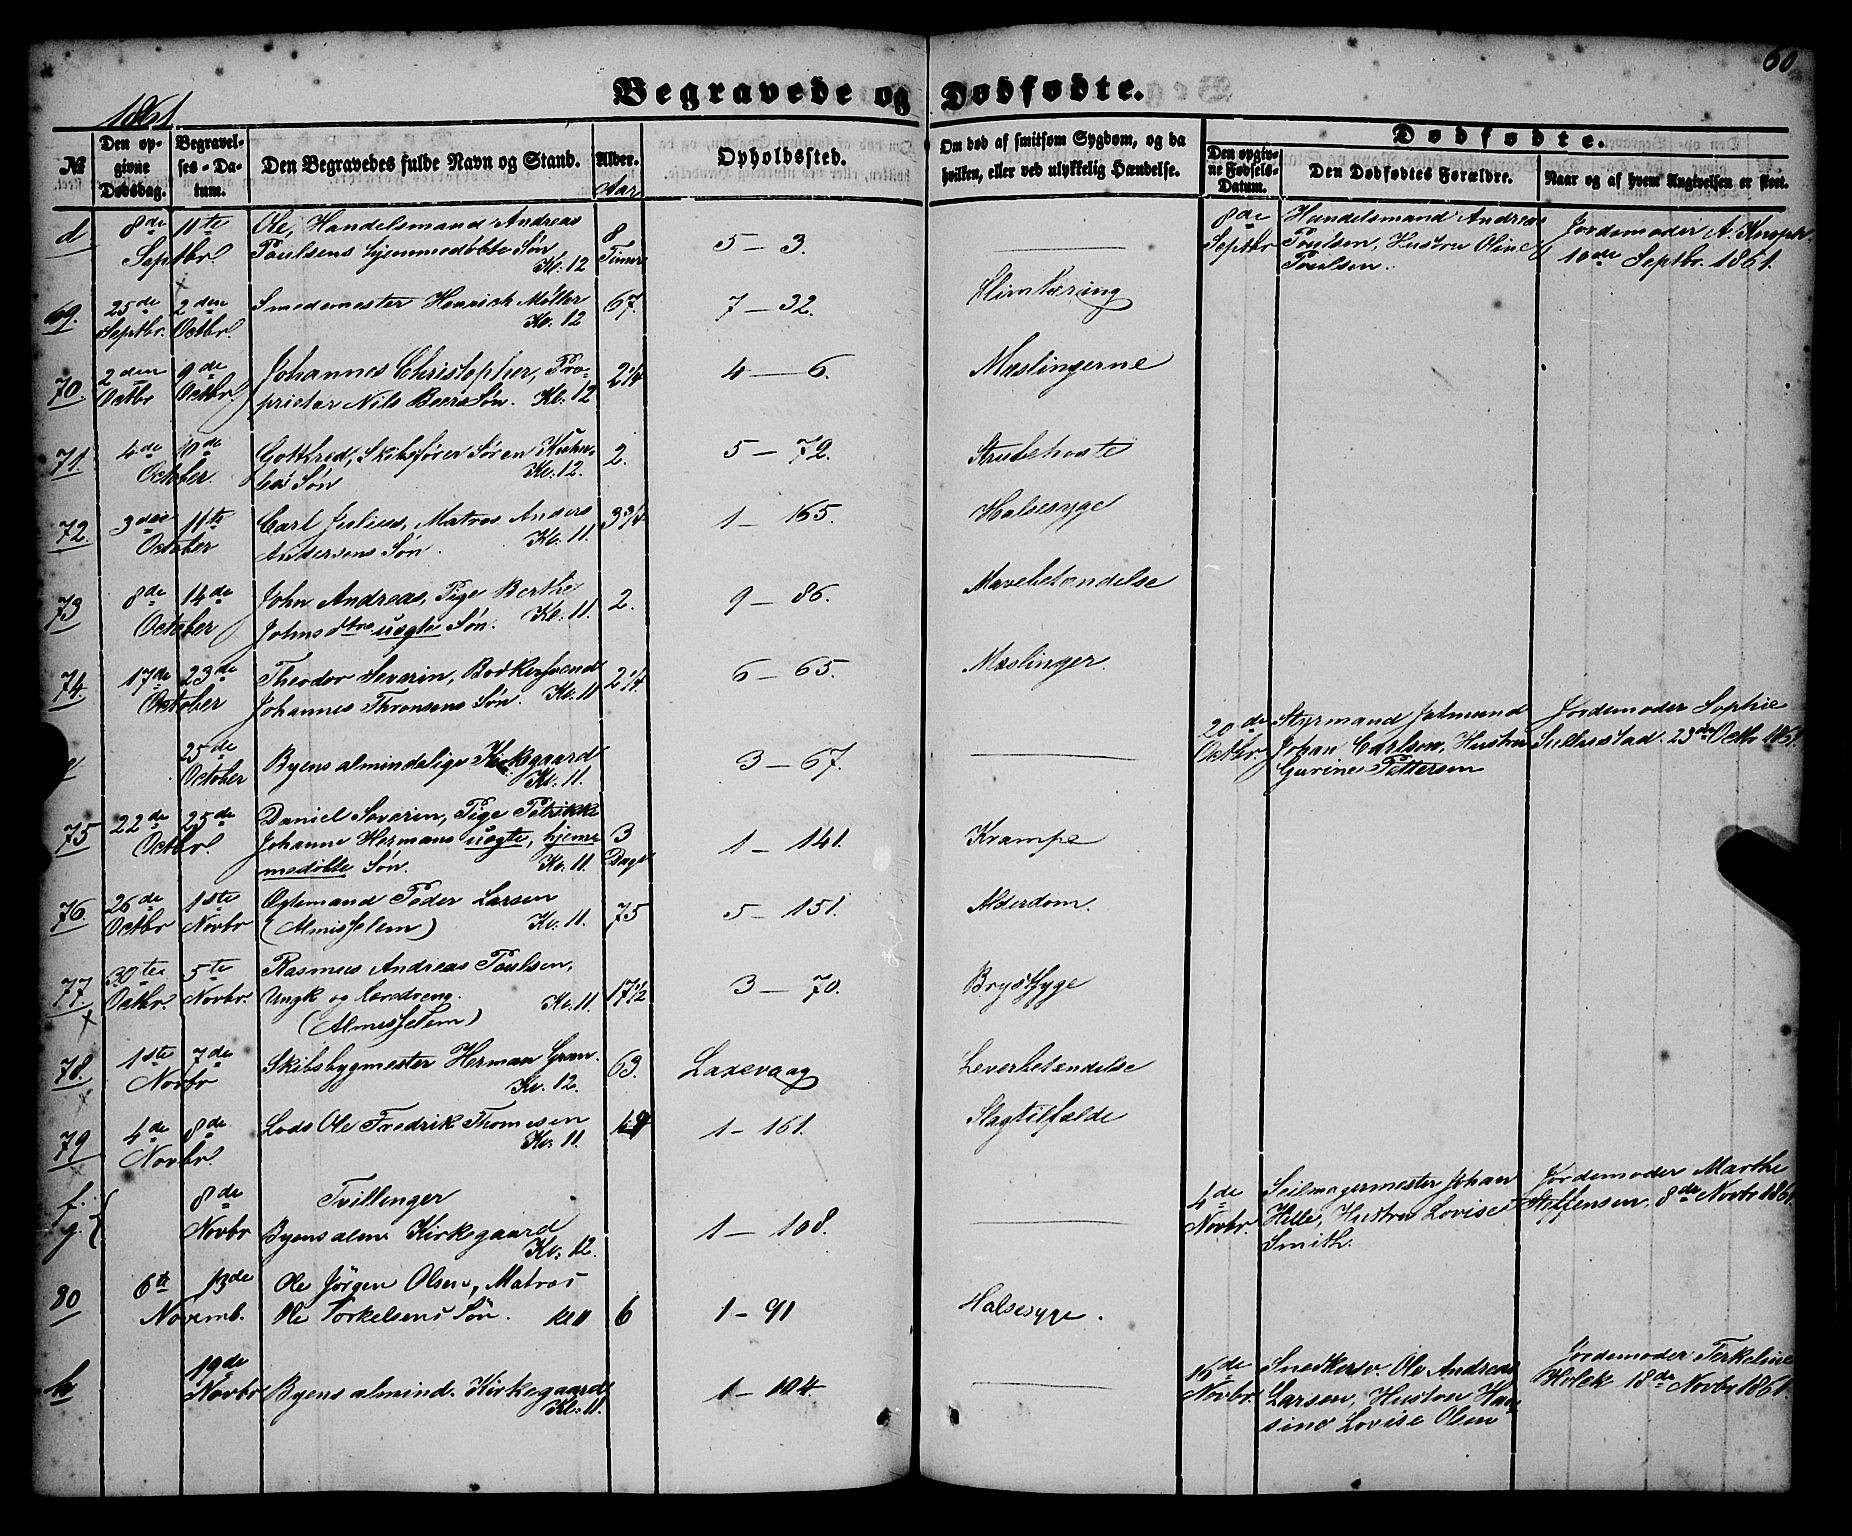 60
Begravede og Dødfødte.
1861
№
Den opgivne Dødsdag.
Begravelses-Datum.
Den Begravedes fulde Navn og Stand.
Alder.
Aar
Opholdssted.
Om død af smitsom Sygdom, og da hvilken, eller ved ulykkelig Hændelse.
Dødfødte.
Den opgivne Fødsels-Datum.
Den Dødfødtes Forældre.
Naar og af hvem Angivelsen er skeet.
d 8de 11te Ole, Handelsmand Andreas 8 5 – 3. 8de Handelsmand Andreas Jordemoder A.
Septbr. Poulsens hjemmedøbte Søn Timer Septbr Poulsen, Hustru Oline 10de Septbr. 1861.
Kl: 12 Poulsen.
69. 25de 2den Smedemester Henrich Møller 67. 7 – 32. Slimtæring
Septbr. Octbr. Kl. 12
70. 2den 9de Johannes Christopher, Pro- 2 1/4 4 – 6. Mæslingerne
Octbr Octbr. prietær Nils Beers Søn. Kl: 12
71. 4de 10de Gottfred, Skibsfører Søren 2. 5 – 72. Strubehoste
October. Søn Kl. 12.
72. 3die 11te Carl Julius, Matros Anders 3 3/4 1 – 165. Halssyge
October Andersens Søn. Kl. 11.
73 8de 14de John Andreas, Pige Berthe 2. 9 – 86. Mavebetændelse
October Johnsdtrs uægte Søn. Kl: 11.
74. 17de 23de Theodor Severin, Bødkersvend 2 1/4 6 – 65. Mæslinger.
October Johannes Thronsens Søn. Kl. 11
e 25de Byens almindelige Kirkegaard 3 – 67. 20de Styrmand Johan Carlsen, Hustru Jordemoder Sophie
October Kl. 11. Octbr. Gurine Pettersen 23de Octbr 1861.
75 22de 25de Daniel Severin, Pige Petrikke 3 1 – 141. Krampe
Octbr. Johanne Hermans uægte, hjem- Dage
medøbte Søn. Kl. 11.
76. 26de 1ste Ægtemand Peder Larsen 75 5 – 151. Alderdom.
Octbr Novbr (Almisselem) Kl. 11.
77. 30te 5te Rasmus Andreas Poulsen, 17 1/2 3 – 70. Brystsyge
Octbr. Novbr. Ungk og læredreng. Kl. 11
(Almisselem)
78. 1ste 7de Skibsbygmester Herman Gran. 63. Laxevaag Leverbetændelse
Novbr Kl. 12.
79 4de 8de Lods Ole Fredrik Thomesen 1 – 161. Slagtilfælde
Novbr. Kl. 11.
f. 8de Tvillinger 4de Seilmagermester Johan Jordemoder Marthe
g. Novbr Byens alm. Kirkegaard 1 – 108. Novbr. Hille, Hustru Lovise Steffensen, 8de Novbr 1861.
Kl. 12. Smith.
80 6te 13de Ole Jörgen Olsen, Matros
Novemb. Ole Torkelsens Søn. Kl 11 6 1 – 91 Halssyge.
h 19de 16de Snedkersv. Ole Andreas Jordemoder Terkeline
Novbr Byens almind. Kirkegaard 1 – 104. Novbr. Larsen, Hustru Han- Holck 18de Novbr 1861.
Kl. 11. sine Lovise Olsen